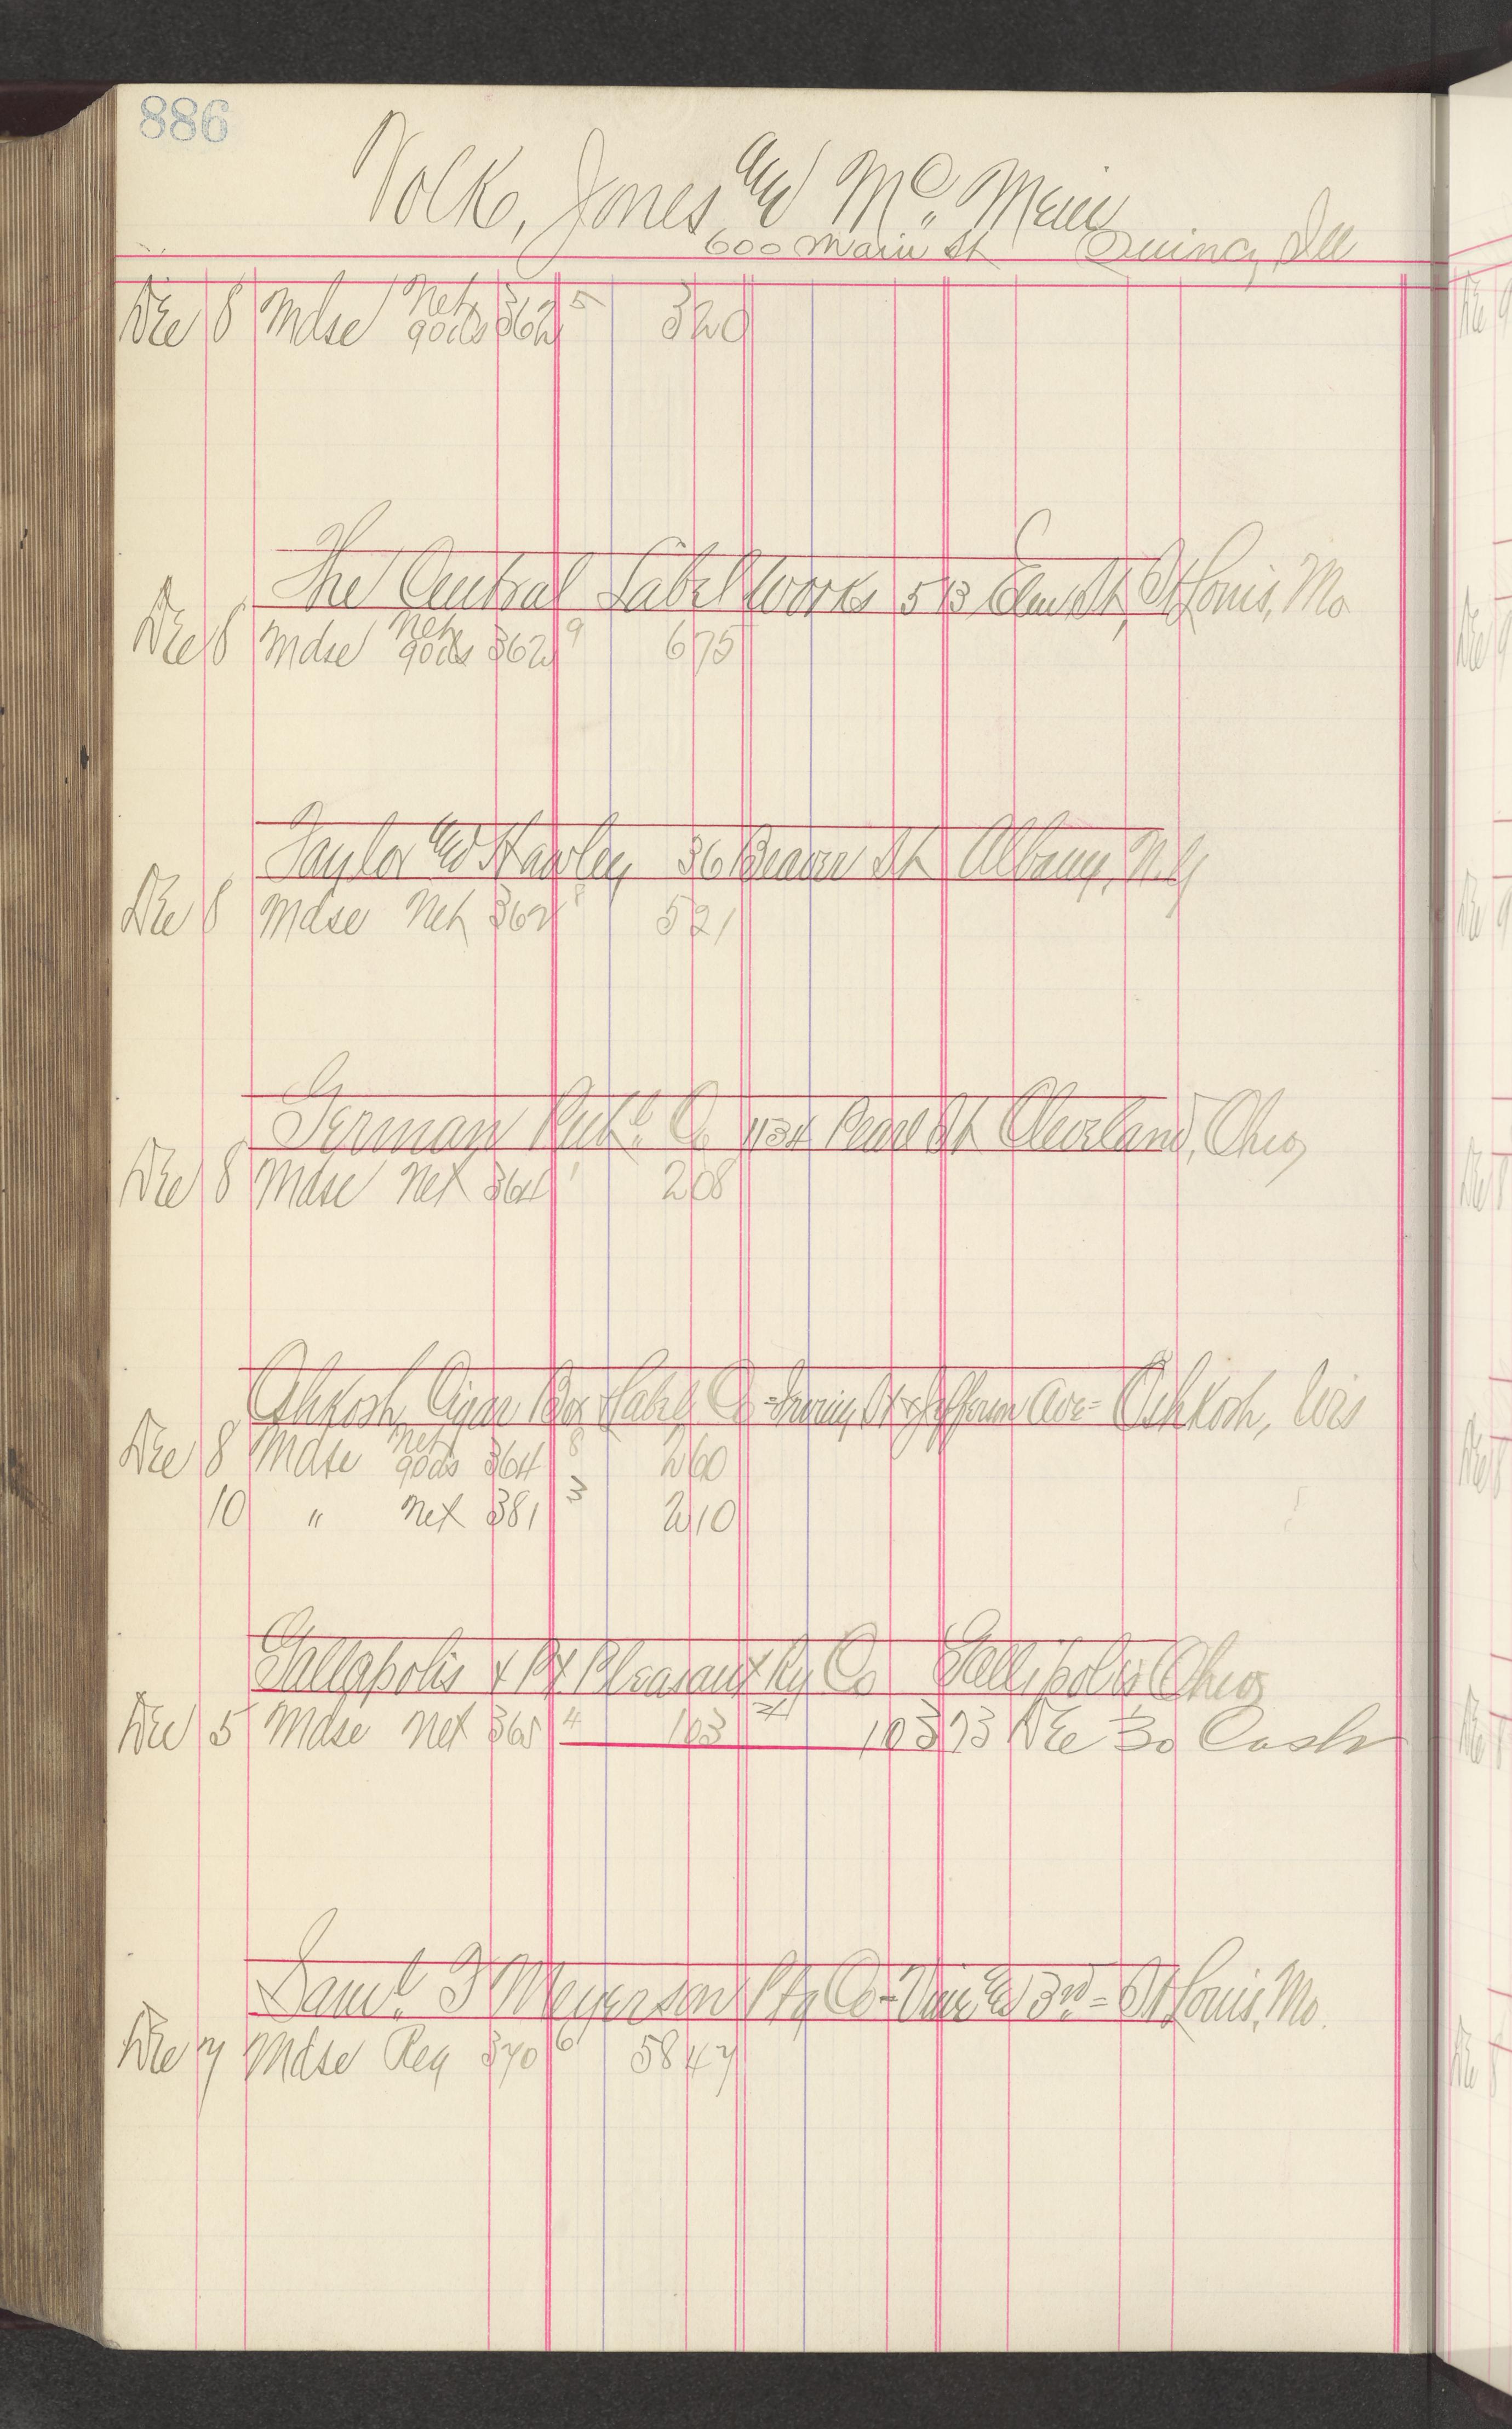 886
Volk, Jones and Mc. Mein
600 Main St Quincy, Ill
Dec 8 Mdse Net 362 5 320
gods
The Central Label Works 513 Elm St, St Louis, Mo
Dec 8 Mdse Net 362 9 675
gods
Taylor and Hawley 36 Beaver St Albany, N.Y
Dec 8 Mdse Net 362 8 521
German Pub. Co 1134 Pearl St Cleveland, Ohio
Dec 8 Mdse Net 364 1 208
Oshkosh Cigar Box Label Co - Irving St & Jefferson Ave - Oshkosh, Wis
Dec 8 Mdse Net 364 8 260
gods
10 " Net 381 3 210
Gallapolis & Pt Pleasant Ry Co Gallipolis Ohio
Dec 5 Mdse Net 365 4 103 103 73 Dec 30 Cash
Saml. F Meyerson Ptg Co - Vine and 3rd - St Louis, Mo.
Dec 7 Mdse Reg 370 6 5847